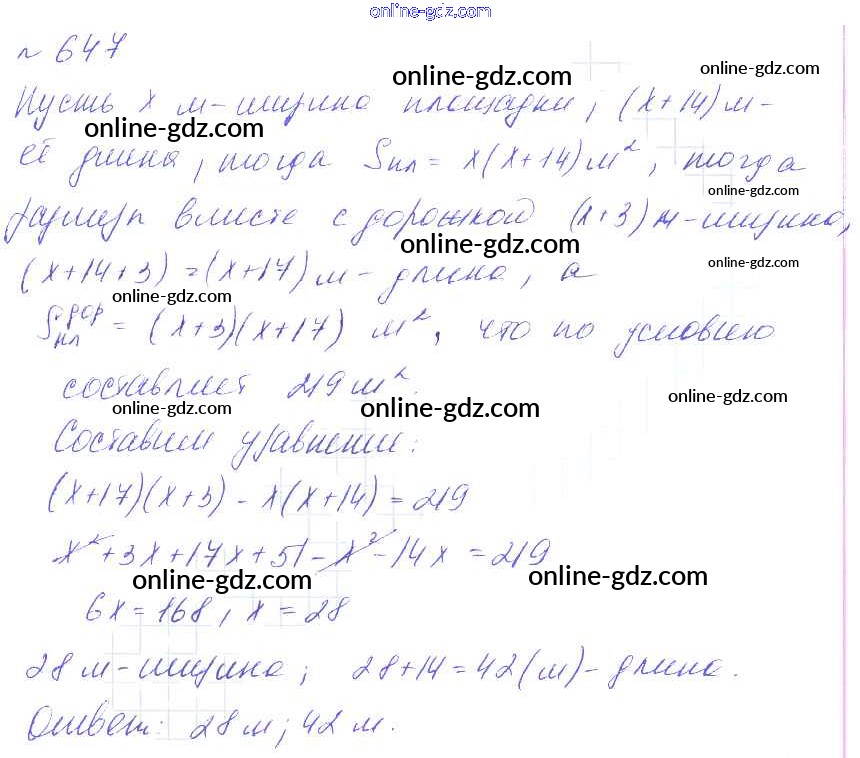 online-gdz.com
№ 647
online-gdz.com
online-gdz.com
Пусть x м-ширина площадки, (x+14) м-
online-gdz.com
её длина, тогда Sпл = x(x+14) м², тогда
online-gdz.com
размеры вместе с дорожкой (x+3) м-ширина,
online-gdz.com
(x+14+3) = (x+17) м- длина, а
online-gdz.com
online-gdz.com
Sпл дор = (x+3)(x+17) м², что по условию
составляет 219 м².
online-gdz.com
online-gdz.com
online-gdz.com
Составим уравнение:
(x+17)(x+3) - x(x+14) = 219
x²+3x+17x+51-x²-14x = 219
online-gdz.com
online-gdz.com
6x = 168, x = 28
28 м-ширина; 28+14=42(м)- длина.
Ответ: 28 м; 42 м.